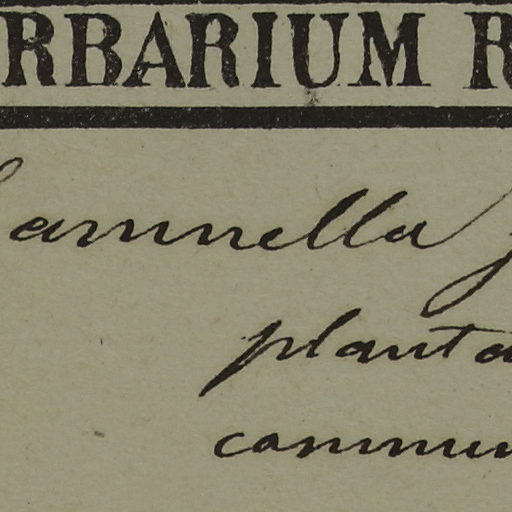 RBARIUM R
amnella
planta
commun